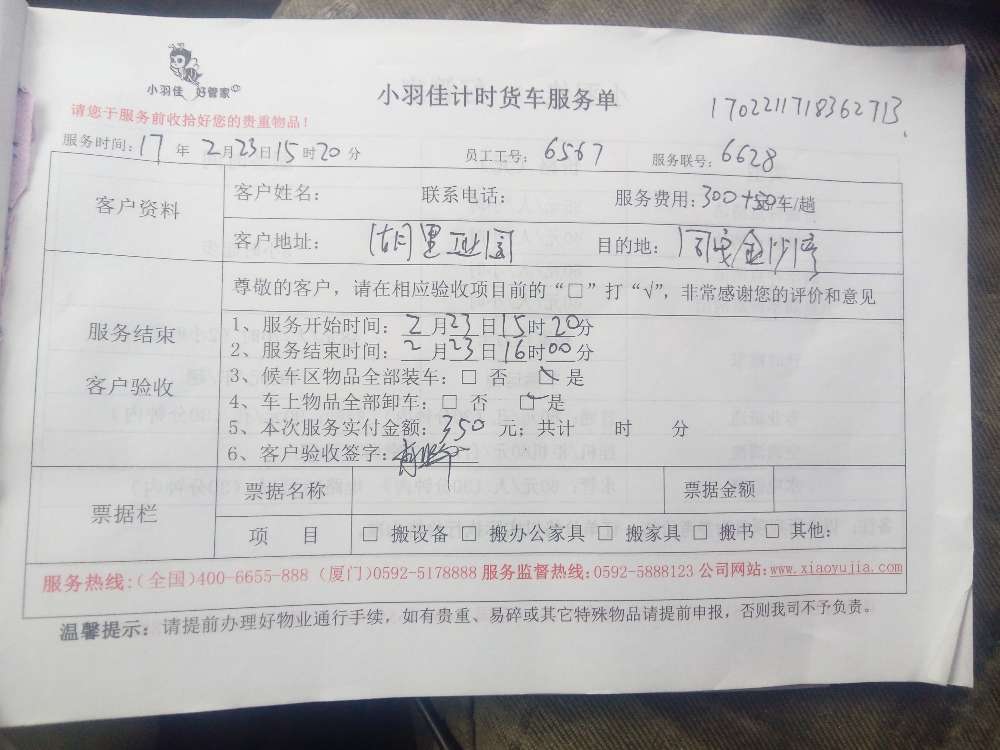 小羽佳 好管家
小羽佳计时货车服务单
1702211718362713
请您于服务前收拾好您的贵重物品！
服务时间：17 年 2月23日15时20分 员工工号：6567 服务联号：6628
客户资料
客户姓名： 联系电话： 服务费用：300+50车/趟
客户地址：湖里工业园 目的地：同安金沙湾
服务结束
客户验收
尊敬的客户，请在相应验收项目前的“□”打“√”，非常感谢您的评价和意见
1、服务开始时间：2月23日15时20分
2、服务结束时间：2月23日16时00分
3、候车区物品全部装车：□ 否 ☑ 是
4、车上物品全部卸车：□ 否 ☑ 是
5、本次服务实付金额：350 元；共计 时 分
6、客户验收签字：
票据栏
票据名称 票据金额
项 目 □ 搬设备 □ 搬办公家具 □ 搬家具 □ 搬书 □ 其他：
服务热线：（全国）400-6655-888（厦门）0592-5178888 服务监督热线：0592-5888123 公司网站：www.xiaoyujia.com
温馨提示：请提前办理好物业通行手续，如有贵重、易碎或其它特殊物品请提前申报，否则我司不予负责。